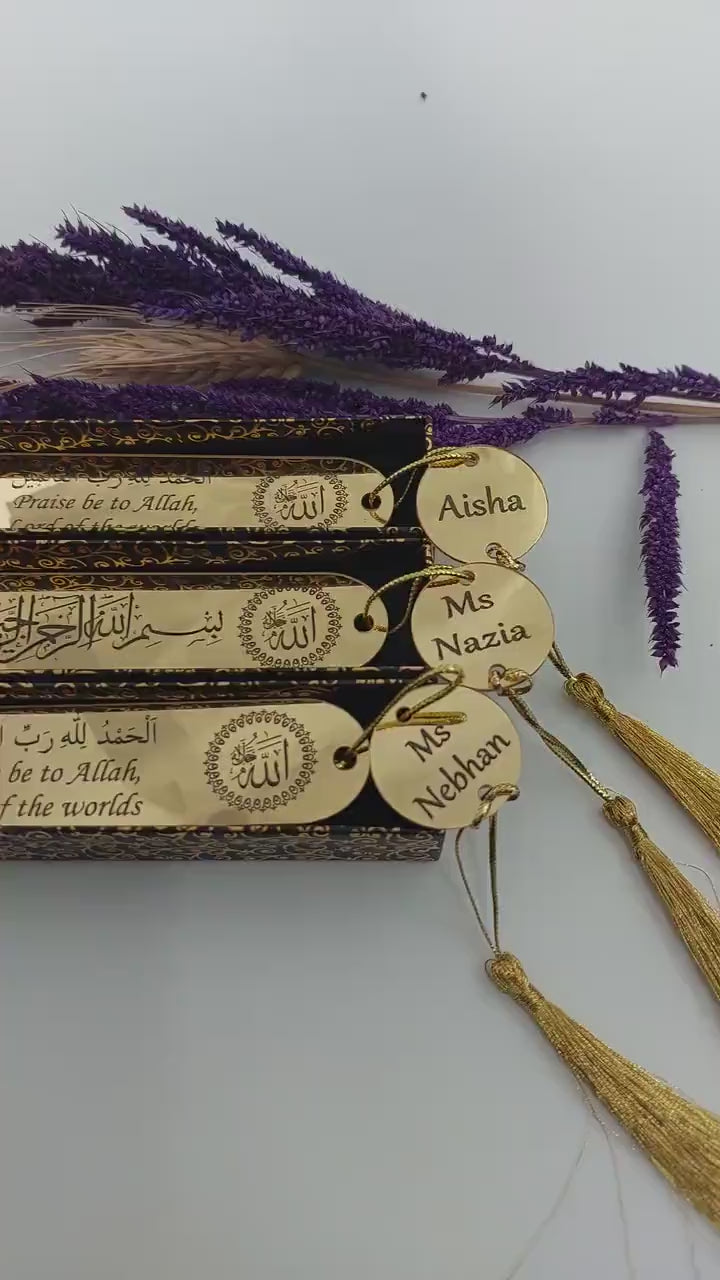 الحمد لله رب العالمين
Praise be to Allah,
Lord of the worlds
الله
Aisha
بسم الله الرحمن الرحيم
الله
Ms
Nazia
اَلْحَمْدُ لِلّٰهِ رَبِّ
be to Allah,
f the worlds
الله
Ms
Nebhan